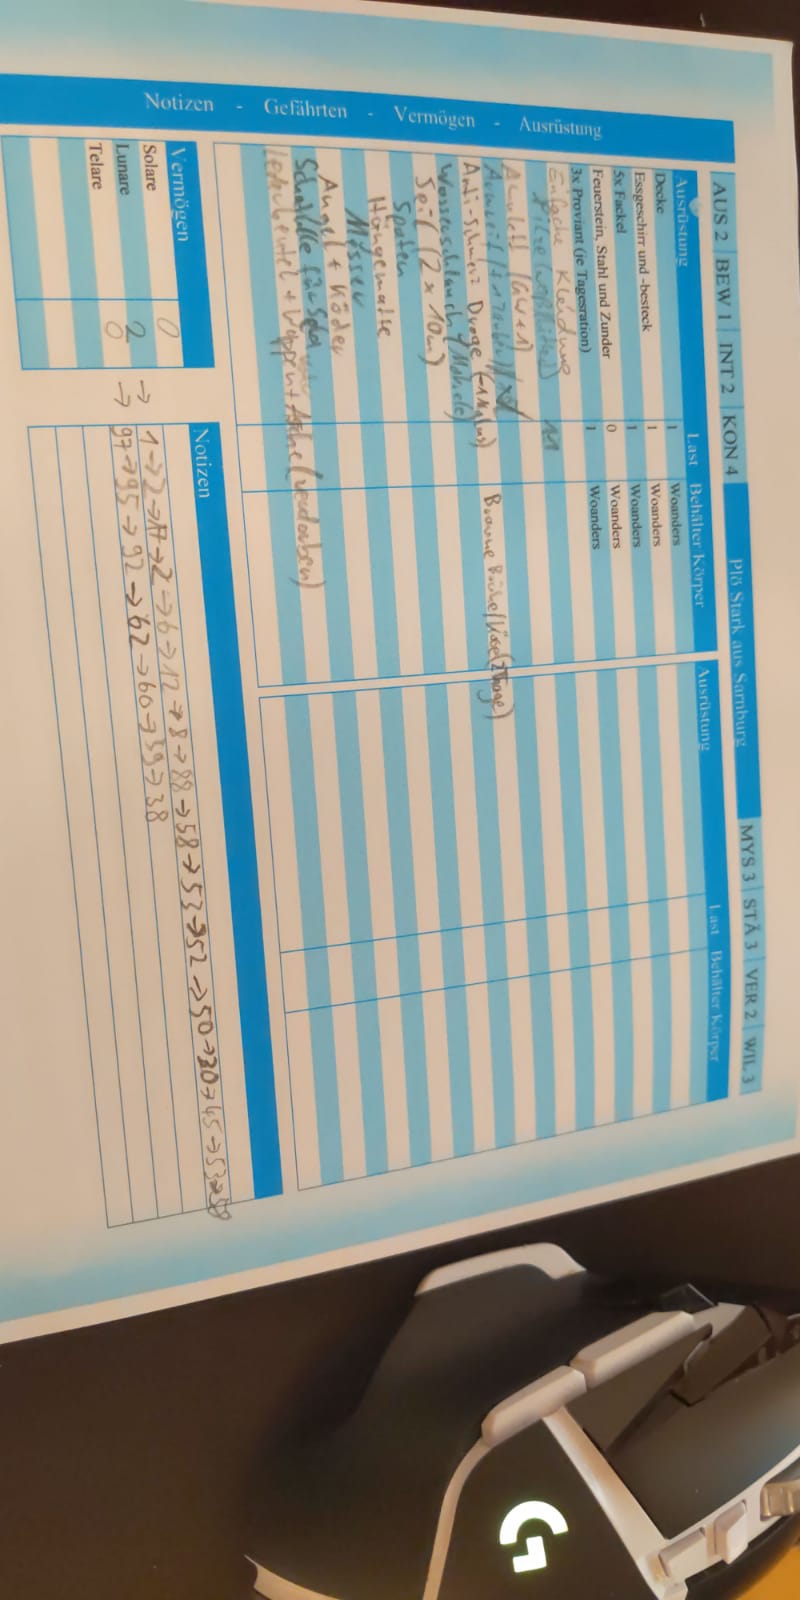 AUS 2 BEW 1 INT 2 KON 4 Plö Stark aus Sarnburg MYS 3 STÄ 3 VER 2 WIL 3
Notizen - Gefährten - Vermögen - Ausrüstung
Ausrüstung Last Behälter Körper
Decke 1 Woanders
Essgeschirr und -besteck 1 Woanders
5x Fackel 1 Woanders
Feuerstein, Stahl und Zunder 0 Woanders
3x Proviant (je Tagesration) 1 Woanders
Einfache Kleidung
Pilze
Amulett (GW+1)
Armreif (+1 Zauber)
Anti-Schmerz Droge Braune Brühe/Käse(2 Tage)
Wasserschlauch
Seil (2 x 10m)
Spaten
Hängematte
Messer
Angel + Köder
Schatulle für
Lederbeutel + Wappen + Asche (verdorben)
Ausrüstung Last Behälter Körper
Vermögen
Solare 0
Lunare 2
Telare 0
Notizen
→ 1→2→17→2→6→12→8→88→58→53→52→50→30→45→53→58
→ 97→95→92→62→60→59→38
G